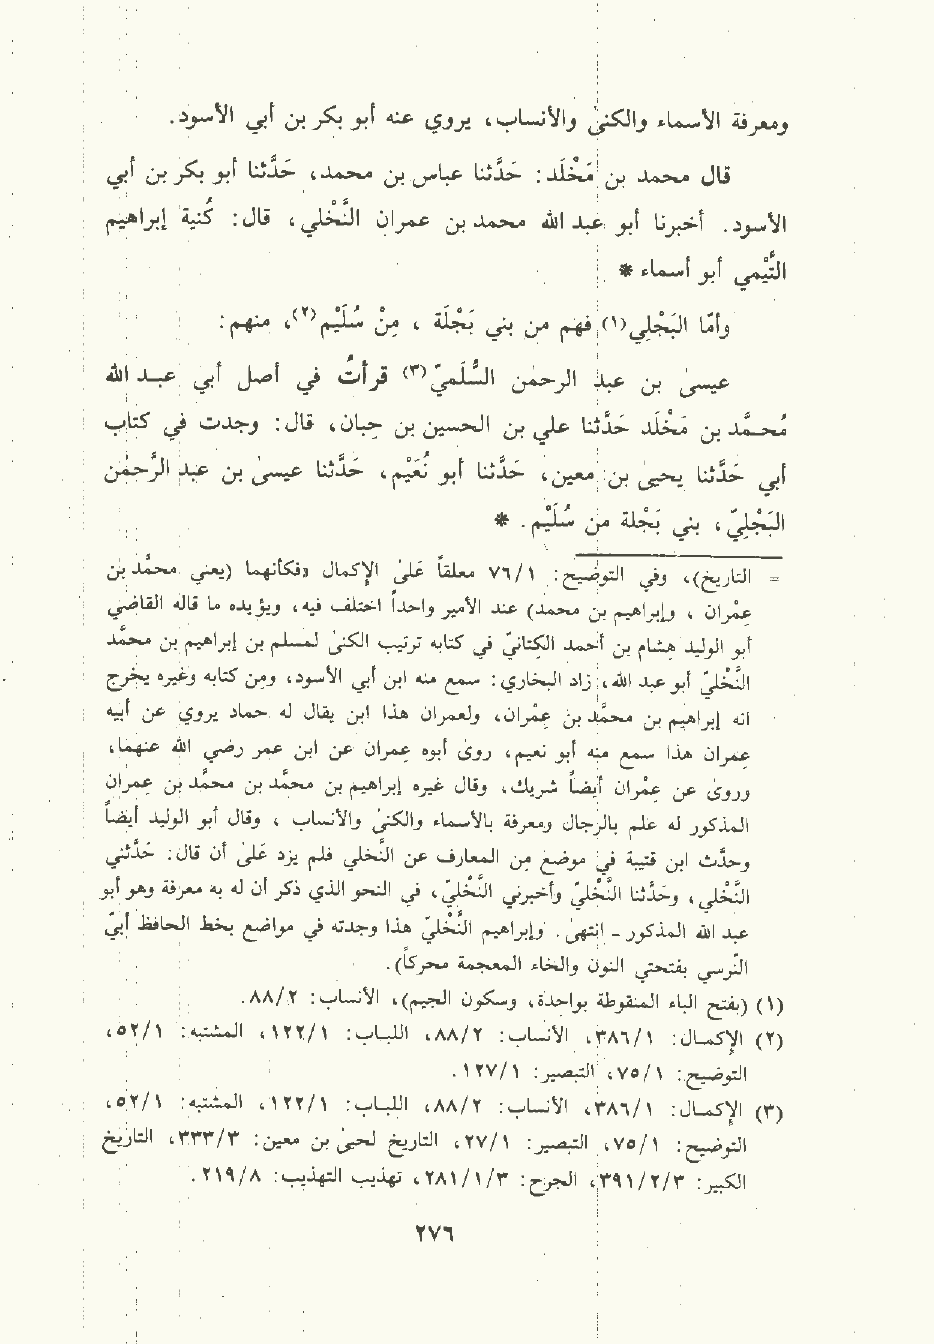 ومعرفة الأسماء والكنىٰ والأنساب، يروي عنه أبو بكر بن أبي الأسود.
قال محمد بن مَخْلَد: حَدَّثنا عباس بن محمد، حَدَّثنا أبو بكر بن أبي
الأسود. أخبرنا أبو عبد الله محمد بن عمران النَّخْلي، قال: كُنية إبراهيم
التَّيْمي أبو أسماء *
وأمّا البَجْلِي(١) فهم من بني بَجْلَة ، مِنْ سُلَيْم(٢)، منهم:
عيسىٰ بن عبد الرحمٰن السُّلَميّ(٣) قرأتُ في أصل أبي عبد الله
مُحمَّد بن مَخْلَد حَدَّثنا علي بن الحسين بن حِبان، قال: وجدت في كتاب
أبي حَدَّثنا يحيىٰ بن معين، حَدَّثنا أبو نُعَيْم، حَدَّثنا عيسىٰ بن عبد الرَّحمٰن
البَجْلِيّ، بني بَجْلة من سُلَيْم. *
= التاريخ)، وفي التوضيح: ٧٦/١ معلقاً عَلىٰ الإكمال «فكأنهما (يعني محمَّد بن
عِمْران ، وإبراهيم بن محمد) عند الأمير واحداً اختلف فيه، ويؤيده ما قاله القاضي
أبو الوليد هِشام بن أحمد الكِتانيّ في كتابه ترتيب الكنىٰ لمسلم بن إبراهيم بن محمَّد
النَّخْليّ أبو عبد الله، زاد البخاري: سمع منه ابن أبي الأسود، ومِن كتابه وغيره يخرج
انه إبراهيم بن محمَّد بن عِمْران، ولعمران هذا ابن يقال له حماد يروي عن أبيه
عِمران هذا سمع منه أبو نعيم، روىٰ أبوه عِمران عن ابن عمر رضي الله عنهما،
وروىٰ عن عِمْران أيضاً شريك، وقال غيره إبراهيم بن محمَّد بن محمَّد بن عمران
المذكور له علم بالرجال ومعرفة بالأسماء والكنىٰ والأنساب ، وقال أبو الوليد أيضاً
وحدَّث ابن قتيبة في موضع مِن المعارف عن النَّخلي فلم يزد عَلىٰ أن قال: حَدَّثني
النَّخْلي، وحَدَّثنا النَّخْليّ وأخبرني النَّخْليّ، في النحو الذي ذكر أن له به معرفة وهو أبو
عبد الله المذكور - انتهىٰ. وإبراهيم النَّخْليّ هذا وجدته في مواضع بخط الحافظ أبيّ
النَّرسي بفتحتي النون والخاء المعجمة محركاً).
(١) (بفتح الباء المنقوطة بواحدة، وسكون الجيم)، الأنساب: ٨٨/٢.
(٢) الإكمال: ٣٨٦/١، الأنساب: ٨٨/٢، اللباب: ١٢٢/١، المشتبه: ٥٢/١،
التوضيح: ٧٥/١، التبصير: ١٢٧/١.
(٣) الإكمال: ٣٨٦/١، الأنساب: ٨٨/٢، اللباب: ١٢٢/١، المشتبه: ٥٢/١،
التوضيح: ٧٥/١، التبصير: ٢٧/١، التاريخ لحيىٰ بن معين: ٣٣٣/٣، التاريخ
الكبير: ٣٩١/٢/٣، الجرح: ٢٨١/١/٣، تهذيب التهذيب: ٢١٩/٨.
٢٧٦